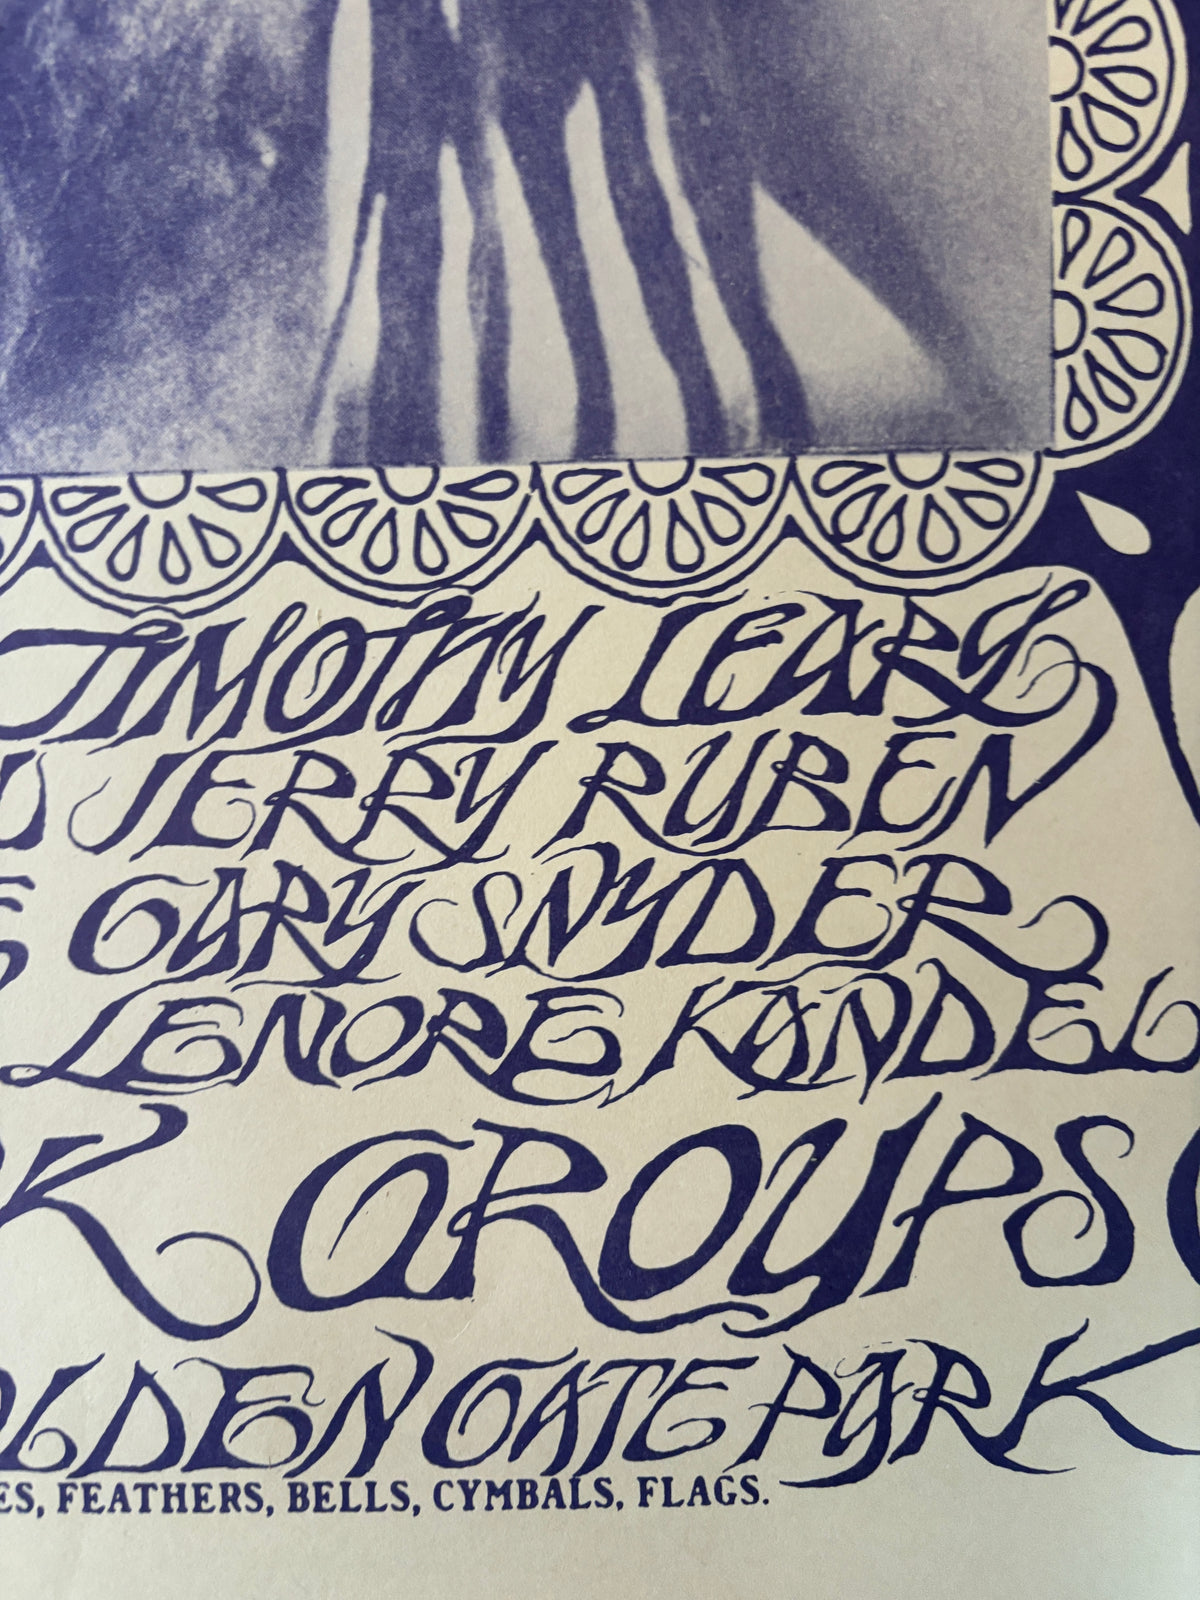 TIMOTHY LEARY
JERRY RUBEN
GARY SNYDER
LENORE KANDEL
K GROUPS
OLDEN GATE PARK
ES, FEATHERS, BELLS, CYMBALS, FLAGS.